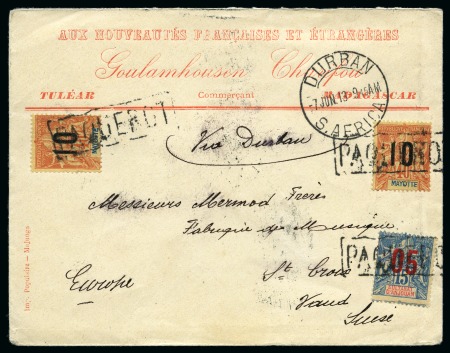 AUX NOUVEAUTÉS FRANÇAISES ET ÉTRANGÈRES
Goulamhousen
TULÉAR Commerçant MADAGASCAR
DURBAN
7 JUN 13
S. AFRICA
10
10
MAYOTTE
PAQUEBOT
Via Durban
Messieurs Mermod Frères
Fabrique de Musique
Europe
Ste Croix
Vaud
Suisse
05
75
Imp. Majunga